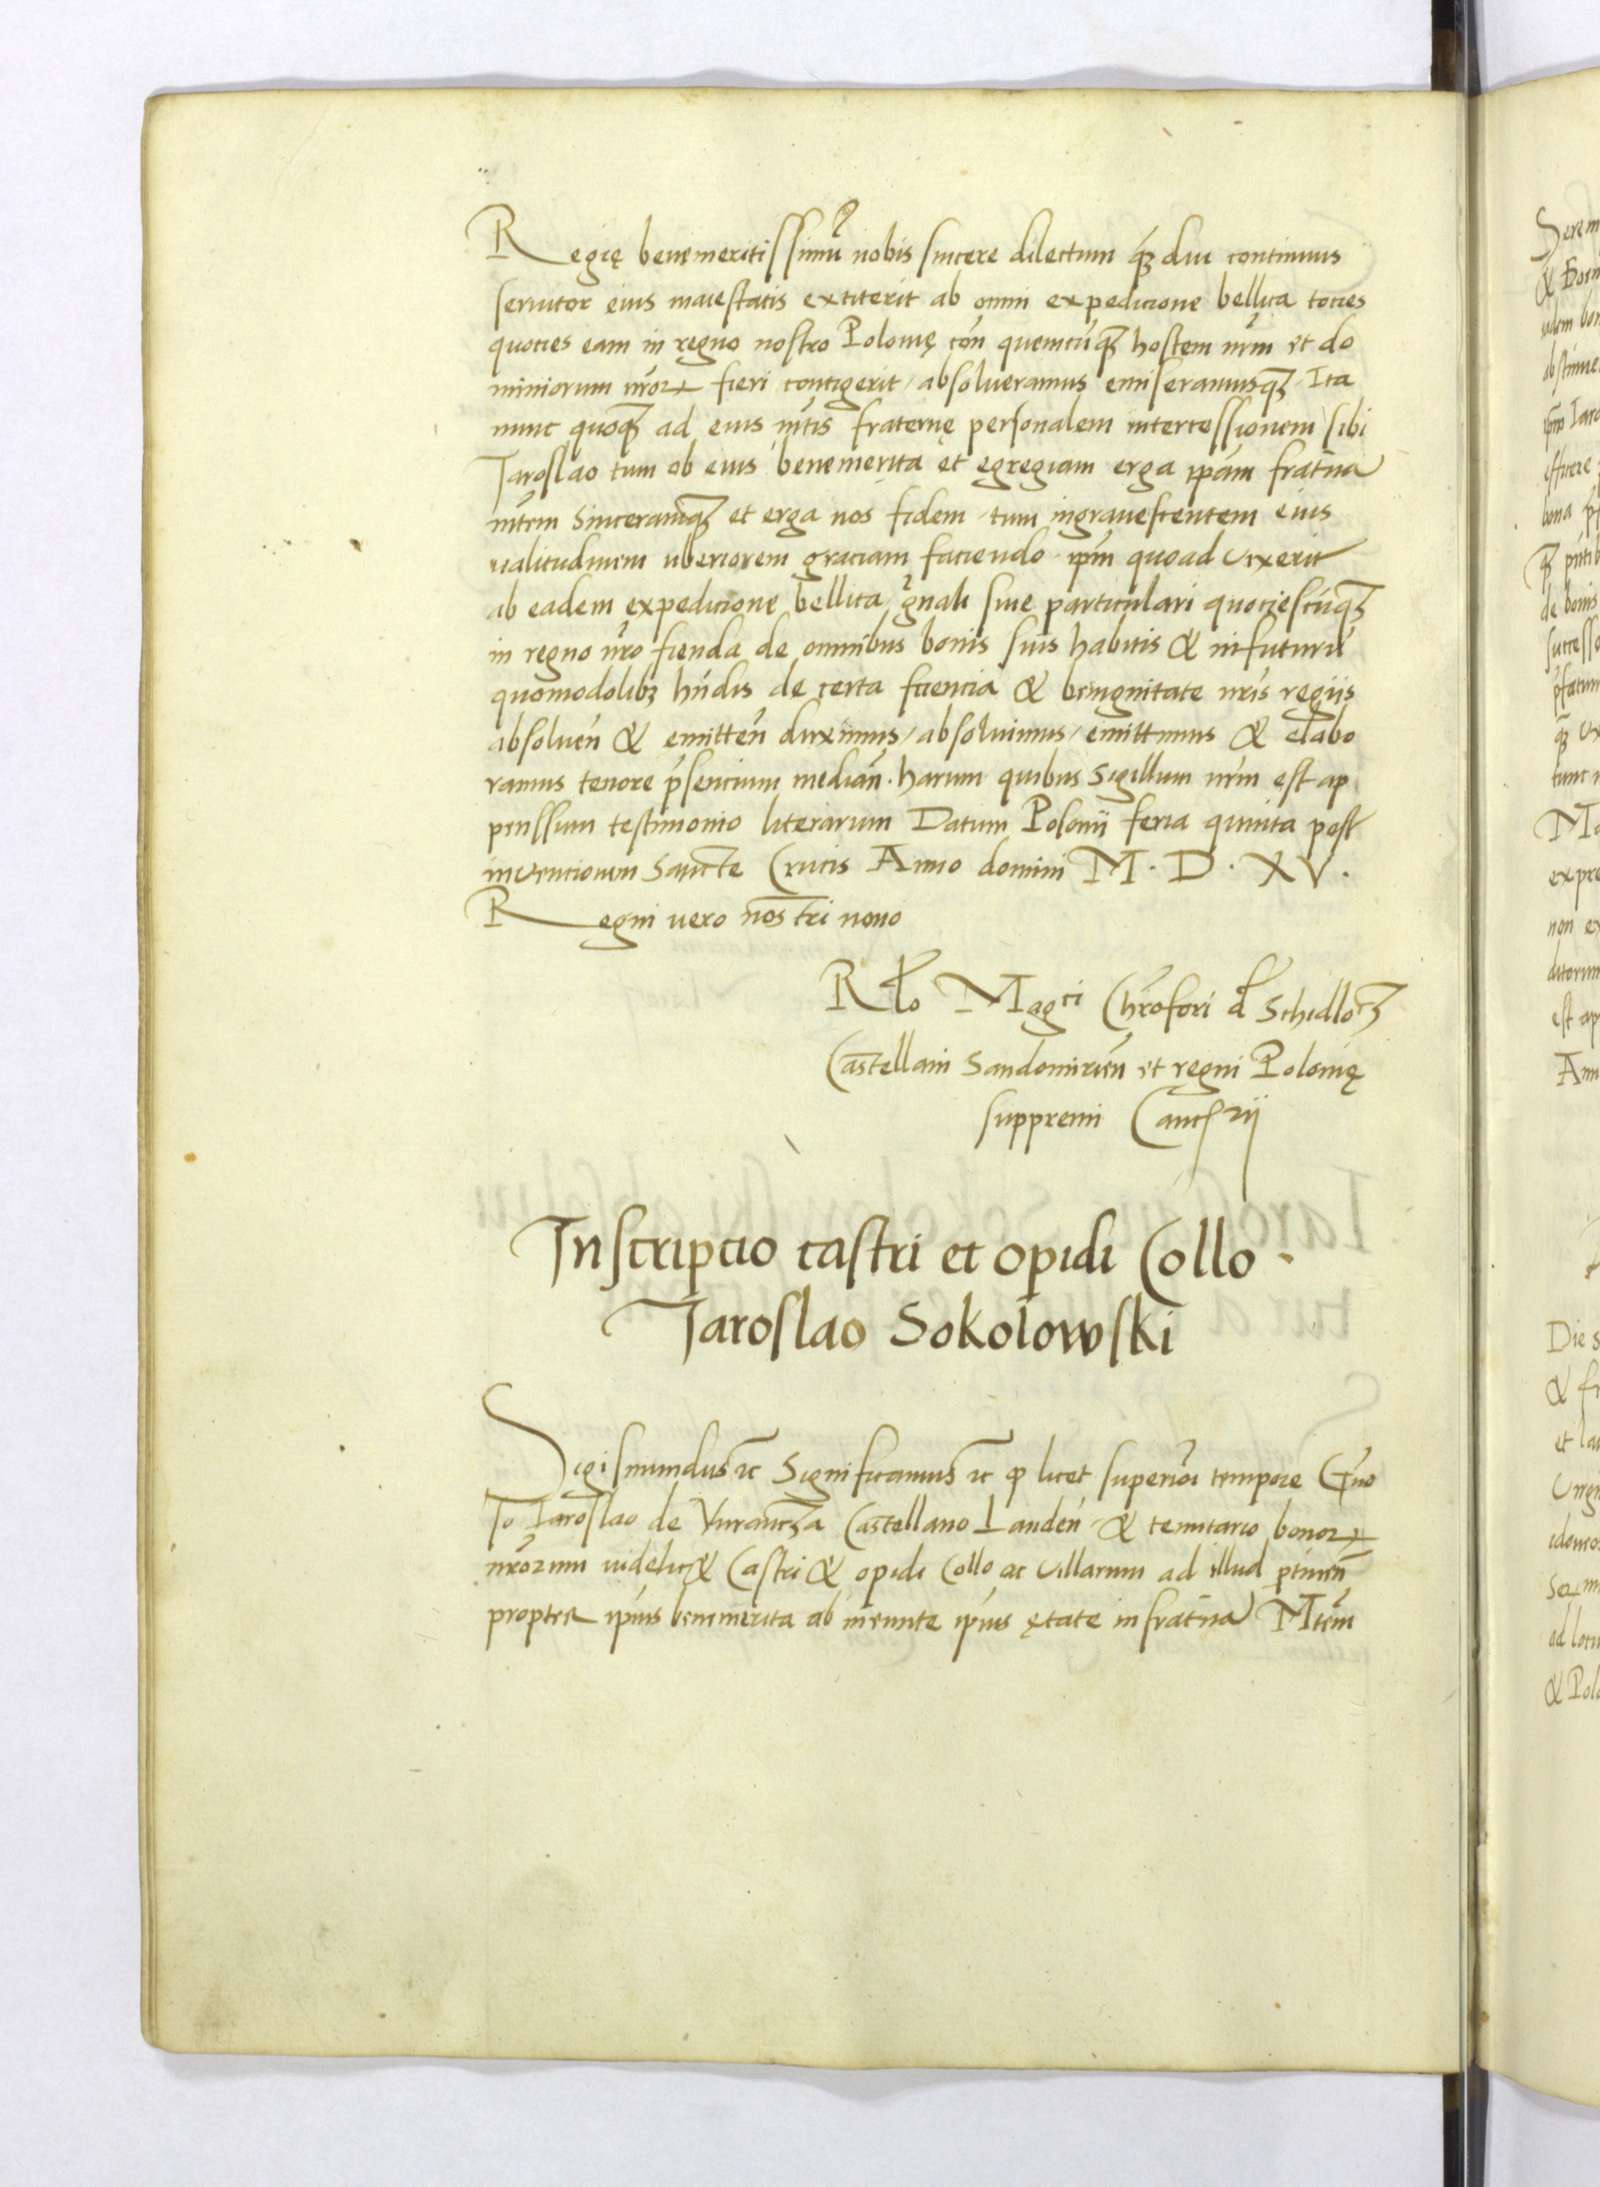 Regię benemeritissimū nobis sincere dilectum q̄ȝ diu continuus
seruitor eius maiestatis extiterit ab omni expedicione bellica tocies
quocies eam in regno nostro Polonię con̄ quemcūqȝ hostem nr̄m et do
miniorum nr̄oꝝ fieri contigerit / absolueramus emiseramusqȝ Ita
nunc quoqȝ ad eius mt̄is fraternę personalem intercessionem sibi
Jaroslao tum ob eius benemerita et egregiam erga ip̄am frat̄na
mt̄em sinceramqȝ et erga nos fidem tum ingrauescentem eius
ualitudinem uberiorem graciam faciendo ip̄m quoad vixerit
ab eadem expedicione bellica gn̄ali siue particulari quociescūqȝ
in regno nr̄o fienda de omnibus bonis suis habitis & in futurū
quomodolibȝ hn̄dis de certa sciencia & benignitate nr̄is regiis
absoluen̄ & emitten̄ duximus / absoluimus / emittimus & elabo
ramus tenore pn̄sencium median̄. harum quibus sigillum nr̄m est ap
penssum testimonio literarum Datum Posonij feria quinta post
inuencionem Sancte Crucis Anno domini M. D. XV.
Regni vero nostri nono
Rl̄o Magci Chr̄ofori d̄ Schidlocȝ
Castellani Sandomirien̄ et regni Polonię
suppremi Canc̄rij
Inscripcio castri et opidi Collo.
Jaroslao Sokolowski
Sigismundus ꝛc Significamus ꝛc ꝙ licet superiori tempore Gn̄o
Jo Jaroslao de Vurancȝa Castellano Landen̄ & tenutario bonoꝝ
nr̄orum uidelicȝ & Castri & opidi Collo ac villarum ad illud ꝑtinen̄
propter ip̄ius benemerita ab ineunte ip̄ius ętate in frat̄na Mtem̄